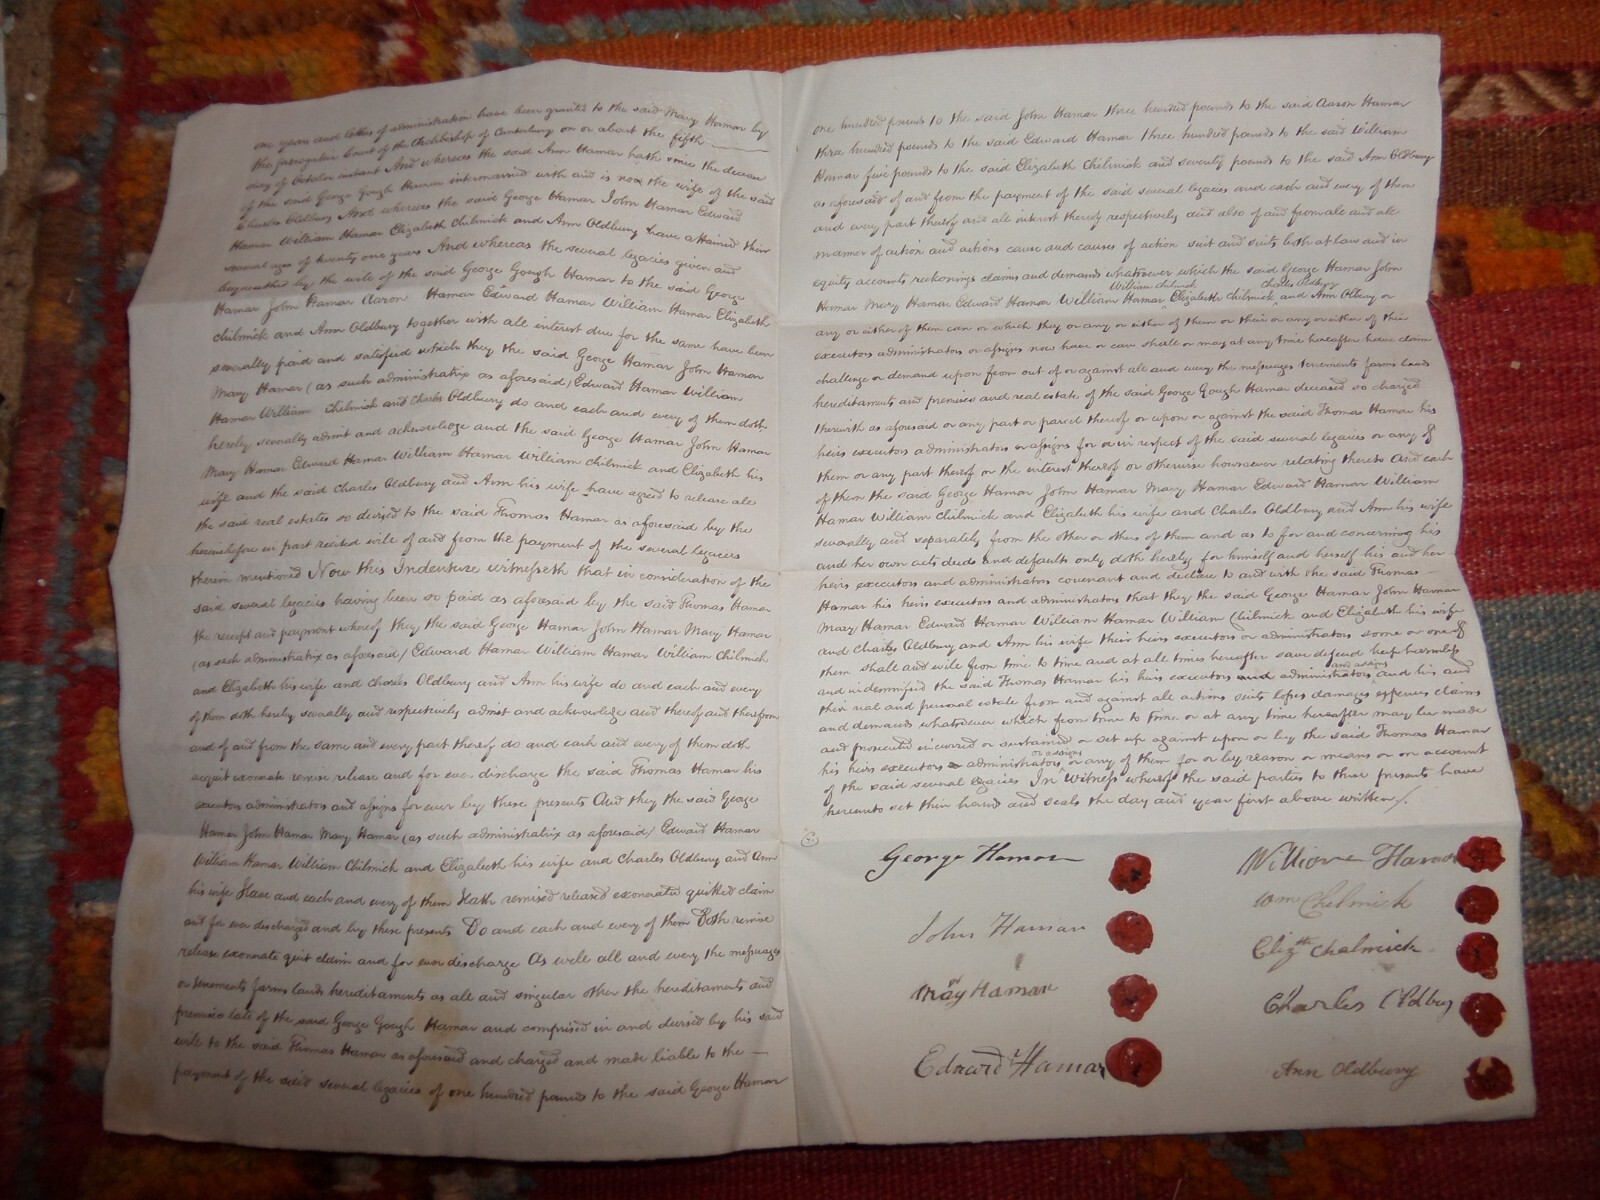 one years and letters of administration have been granted to the said Mary Hamar by
the prerogative Court of the Archbishop of Canterbury on or about the fifth
day of October instant And whereas the said Ann Hamar hath since the decease
of the said George Gough Hamar intermarried with and is now the wife of the said
Charles Oldbury And whereas the said George Hamar John Hamar Edward
Hamar William Hamar Elizabeth Chilmick and Ann Oldbury have attained their
several ages of twenty one years And whereas the several legacies given and
bequeathed by the will of the said George Gough Hamar to the said George
Hamar John Hamar Aaron Hamar Edward Hamar William Hamar Elizabeth
Chilmick and Ann Oldbury together with all interest due for the same have been
severally paid and satisfied which they the said George Hamar John Hamar
Mary Hamar (as such administratrix as aforesaid) Edward Hamar William
Hamar William Chilmick and Charles Oldbury do and each and every of them doth
hereby severally admit and acknowledge and the said George Hamar John Hamar
Mary Hamar Edward Hamar William Hamar William Chilmick and Elizabeth his
wife and the said Charles Oldbury and Ann his wife have agreed to release all
the said real estates so devised to the said Thomas Hamar as aforesaid by the
hereinbefore in part recited will of and from the payment of the several legacies
therein mentioned Now this Indenture witnesseth that in consideration of the
said several legacies having been so paid as aforesaid by the said Thomas Hamar
the receipt and payment whereof they the said George Hamar John Hamar Mary Hamar
(as such administratrix as aforesaid) Edward Hamar William Hamar William Chilmick
and Elizabeth his wife and Charles Oldbury and Ann his wife do and each and every
of them doth hereby severally and respectively admit and acknowledge and thereof and therefrom
and of and from the same and every part thereof do and each and every of them doth
acquit exonerate remise release and for ever discharge the said Thomas Hamar his
executors administrators and assigns for ever by these presents And they the said George
Hamar John Hamar Mary Hamar (as such administratrix as aforesaid) Edward Hamar
William Hamar William Chilmick and Elizabeth his wife and Charles Oldbury and Ann
his wife Have and each and every of them Hath remised released exonerated quitted claim
and for ever discharged and by these presents Do and each and every of them Doth remise
release exonerate quit claim and for ever discharge As well all and every the messuages
or tenements farms lands hereditaments as all and singular other the hereditaments and
premises late of the said George Gough Hamar and comprised in and devised by his said
will to the said Thomas Hamar as aforesaid and charged and made liable to the
payment of the said several legacies of one hundred pounds to the said George Hamar
one hundred pounds to the said John Hamar three hundred pounds to the said Aaron Hamar
three hundred pounds to the said Edward Hamar three hundred pounds to the said William
Hamar five pounds to the said Elizabeth Chilmick and seventy pounds to the said Ann Oldbury
as aforesaid of and from the payment of the said several legacies and each and every of them
and every part thereof and all interest thereof respectively and also of and from all and all
manner of action and actions cause and causes of action suit and suits both at law and in
equity accounts reckonings claims and demands whatsoever which the said George Hamar John
William Chilmick Charles Oldbury
Hamar Mary Hamar Edward Hamar William Hamar Elizabeth Chilmick and Ann Oldbury or
any or either of them can or which they or any or either of them or their or any or either of their
executors administrators or assigns now have or can shall or may at any time hereafter have claim
challenge or demand upon from out of or against all and every the messuages tenements farms lands
hereditaments and premises and real estate of the said George Gough Hamar deceased so charged
therewith as aforesaid or any part or parcel thereof or upon or against the said Thomas Hamar his
heirs executors administrators or assigns for or in respect of the said several legacies or any of
them or any part thereof or the interest thereof or otherwise howsoever relating thereto And each
of them the said George Hamar John Hamar Mary Hamar Edward Hamar William
Hamar William Chilmick and Elizabeth his wife and Charles Oldbury and Ann his wife
severally and separately from the other or others of them and as to for and concerning his
and her own acts deeds and defaults only doth hereby for himself and herself his and her
heirs executors and administrators covenant and declare to and with the said Thomas
Hamar his heirs executors and administrators that they the said George Hamar John Hamar
Mary Hamar Edward Hamar William Hamar William Chilmick and Elizabeth his wife
and Charles Oldbury and Ann his wife their heirs executors or administrators some or one of
them shall and will from time to time and at all times hereafter save defend keep harmless
and assigns
and indemnified the said Thomas Hamar his heirs executors and administrators and his and
their real and personal estate from and against all actions suits losses damages expences claims
and demands whatsoever which from time to time or at any time hereafter may be made
and prosecuted incurred or sustained or set up against upon or by the said Thomas Hamar
or assigns
his heirs executors or administrators or any of them for or by reason or means or on account
of the said several legacies In Witness whereof the said parties to these presents have
hereunto set their hands and seals the day and year first above written
George Hamar
William Hamar
John Hamar
Wm Chelmick
Mary Hamar
Elizth Chelmick
Edward Hamar
Charles Oldbury
Ann Oldbury